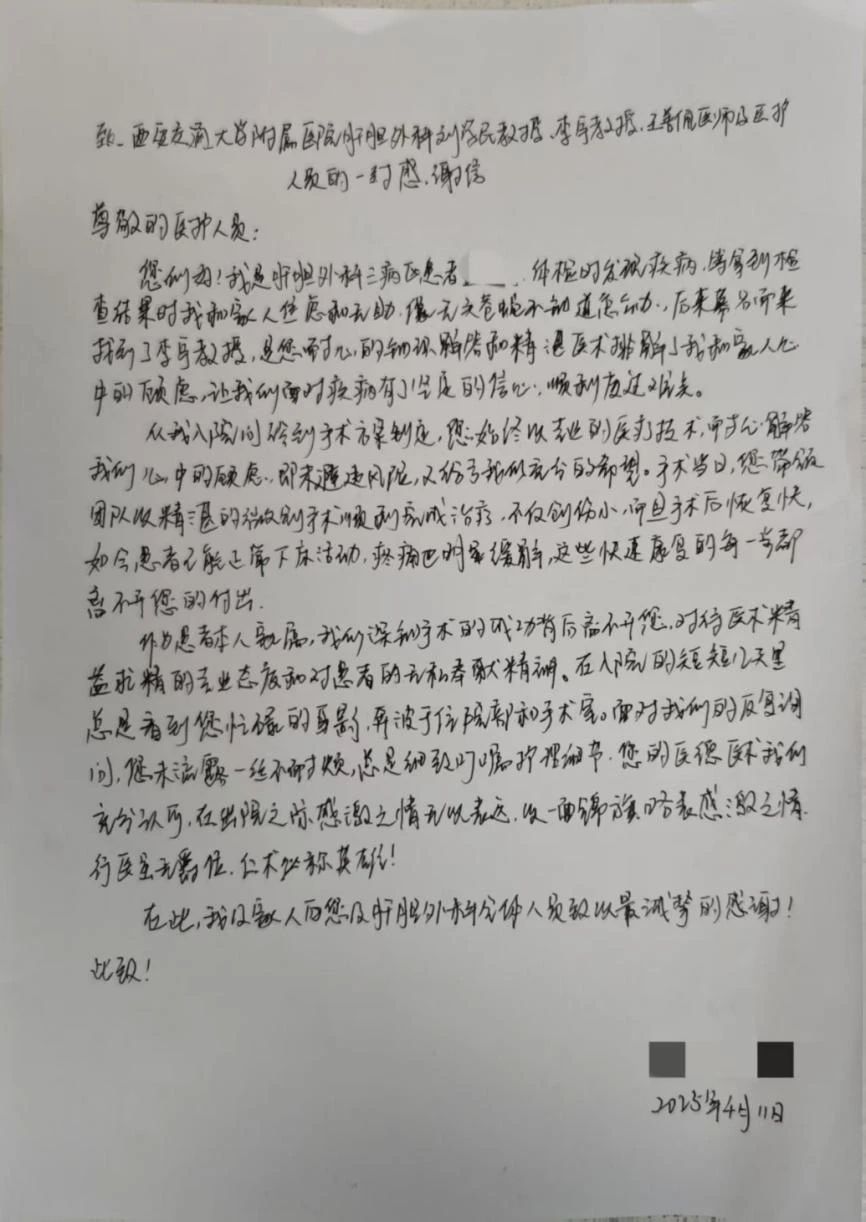 致、西安交通大学附属医院肝胆外科刘学民教授、李宇教授、王善佩医师及医护
人员的一封感谢信
尊敬的医护人员：
您们好！我是肝胆外科三病区患者 体检时发现疾病，当拿到检
查结果时我和家人焦虑和无助，像无头苍蝇不知道怎么办，后来慕名而来
找到了李宇教授，是您耐心的知识解答和精湛医术排解了我和家人心
中的顾虑，让我们面对疾病有了坚定的信心，顺利度过难关。
从我入院问诊到手术方案制定，您始终以专业的医疗技术，耐心解答
我们心中的顾虑，即未避违风险，又给予我们充分的希望。手术当日，您带领
团队以精湛的微创手术顺利完成治疗，不仅创伤小，而且手术后恢复快，
如今患者已能正常下床活动，疼痛也明显缓解，这些快速康复的每一步都
离不开您的付出。
作为患者本人家属，我们深知手术的成功背后离不开您，对待医术精
益求精的专业态度和对患者的无私奉献精神。在入院的短短12天里
总是看到您忙碌的身影，奔波于住院部和手术室。面对我们的反复询
问，您未流露一丝不耐烦，总是细致叮嘱护理细节，您的医德医术我们
充分认可，在出院之际感激之情无以表达，以一面锦旗略表感激之情，
行医虽无爵位，仁术必称英雄！
在此，我及家人向您及肝胆外科全体人员致以最诚挚的感谢！
此致！
2025年4月11日